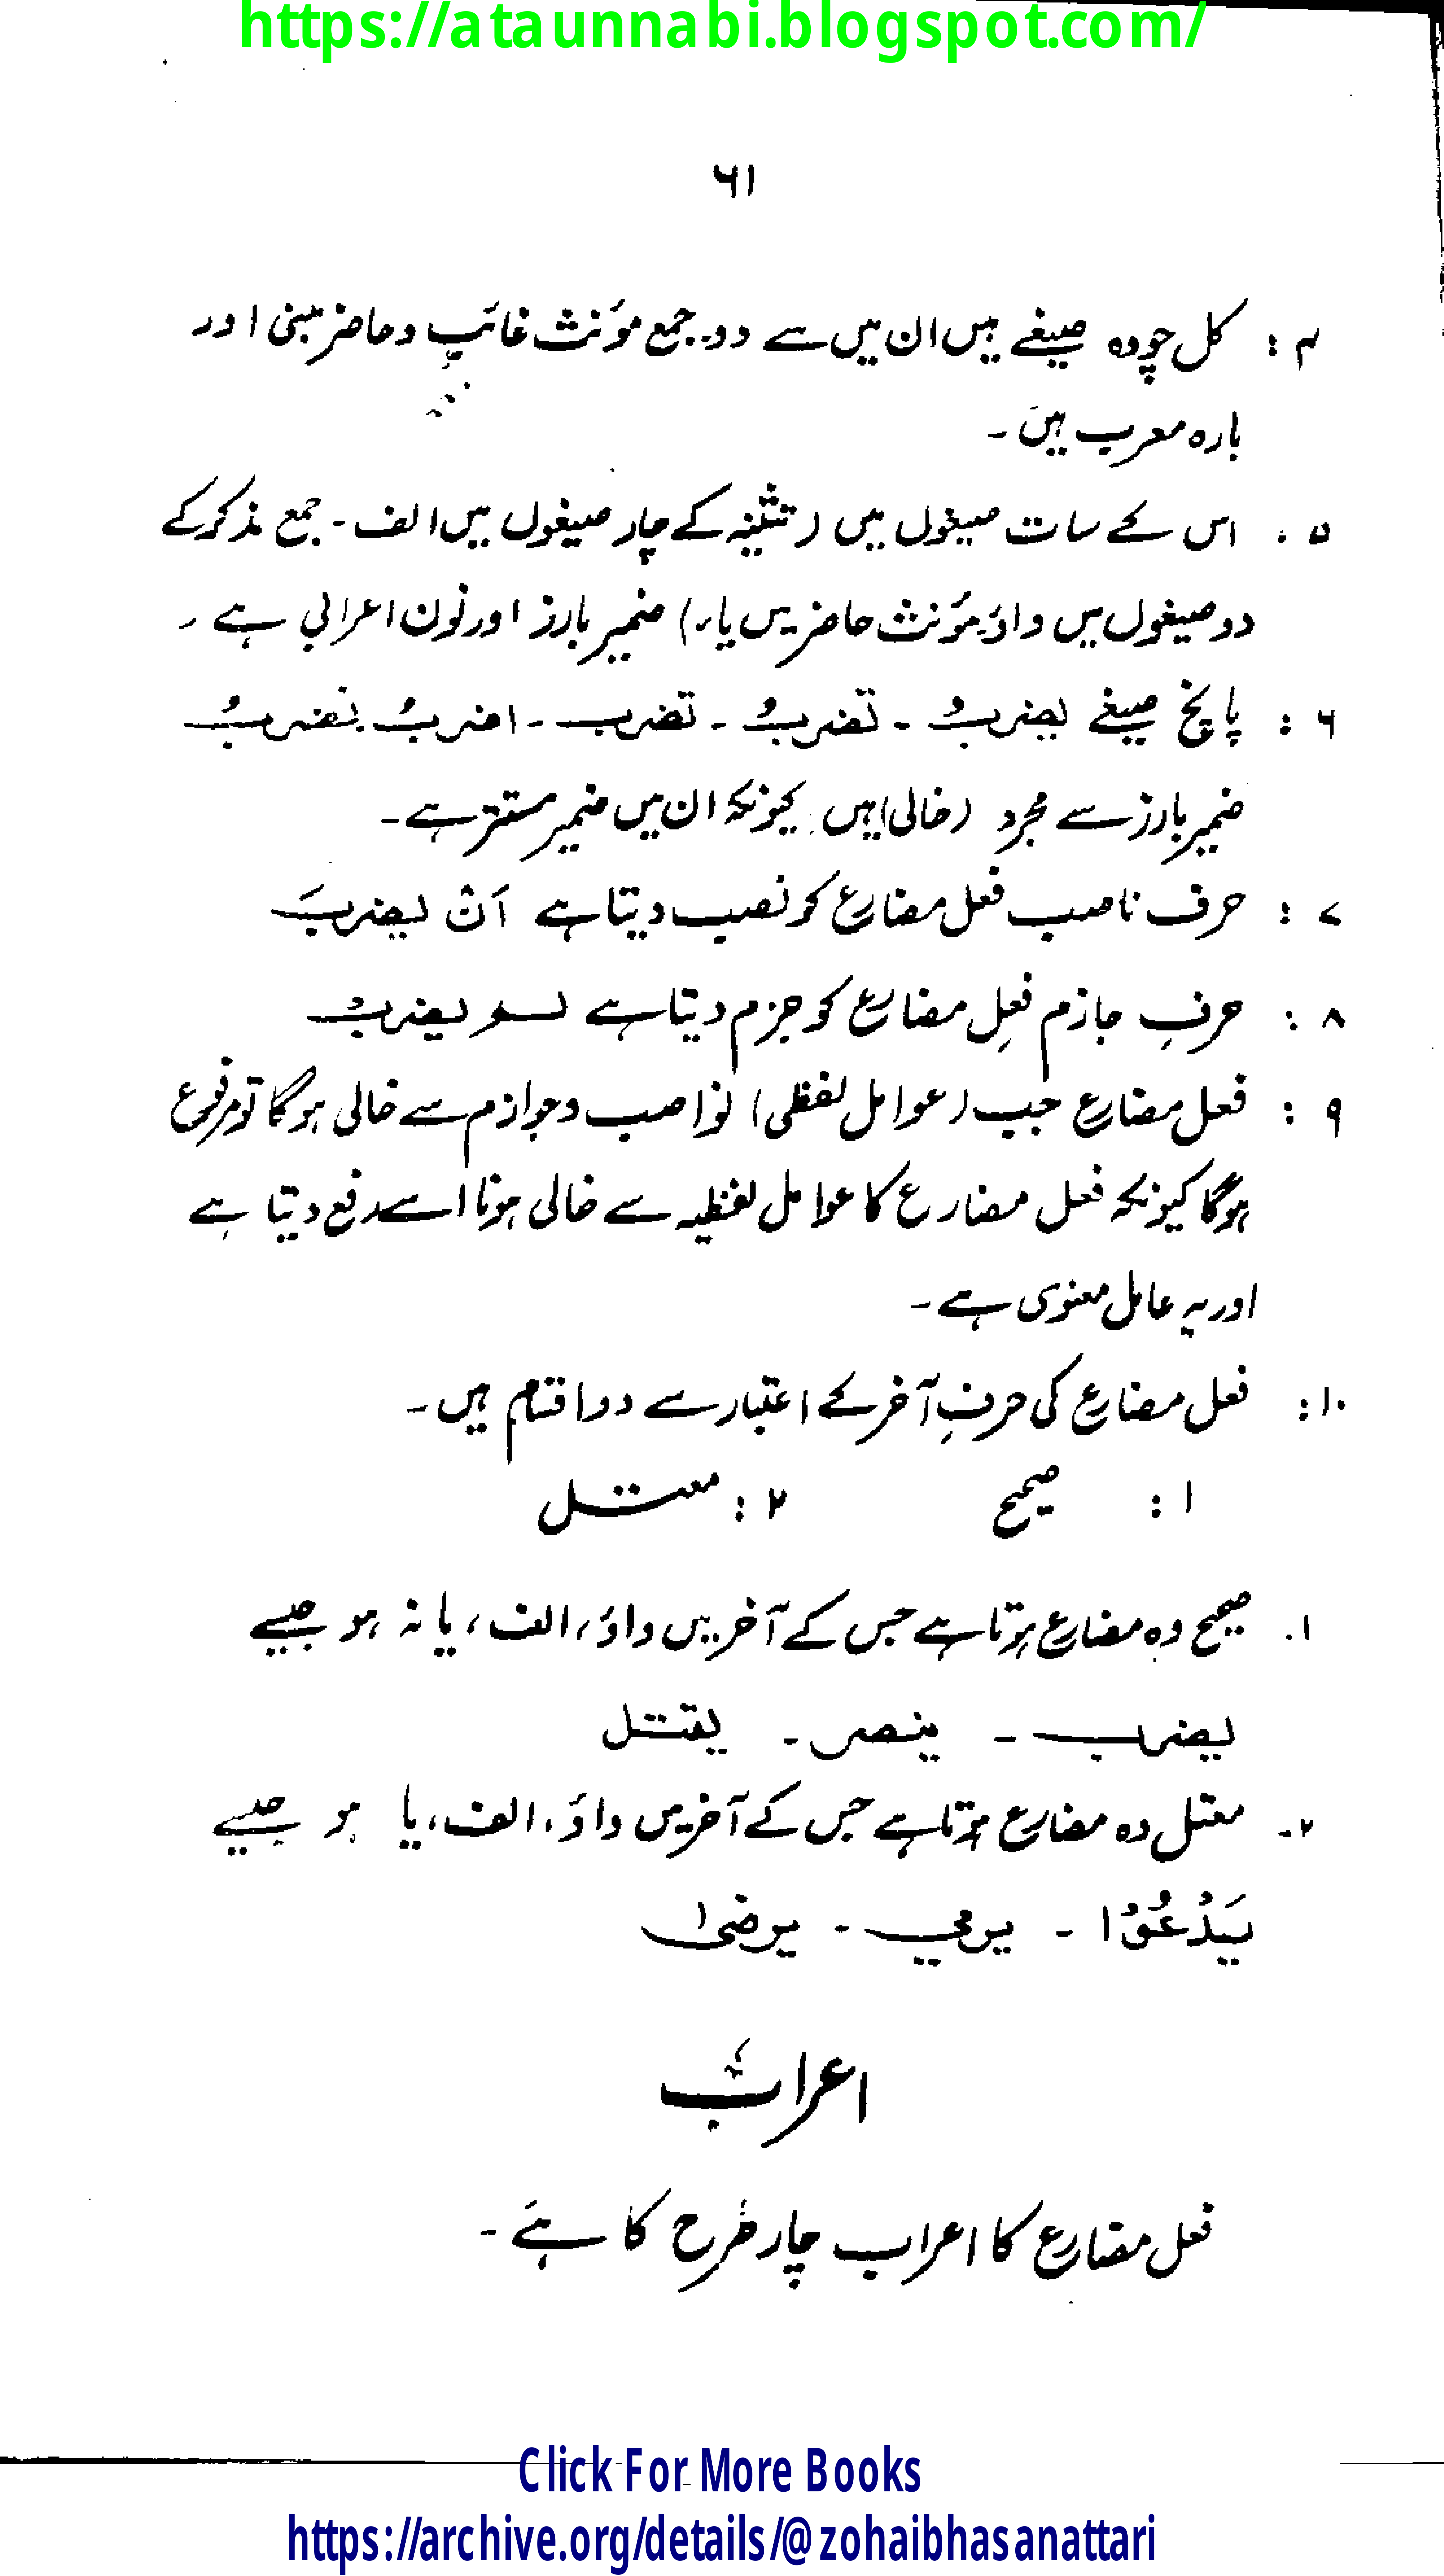 https://ataunnabi.blogspot.com/
٦١
۴ : کل چودہ صیغے ہیں ان میں سے دو۔ جمع مؤنث غائب و حاضر مبنی اور
بارہ معرب ہیں ۔
۵ . اس کے سات صیغوں میں (تثنیہ کے چار صیغوں میں الف ۔ جمع مذکر کے
دو صیغوں میں واؤ۔ مؤنث حاضر میں یاء) ضمیر بارز اور نون اعرابی ہے ۔
٦ : پانچ صیغے یضربُ ۔ تضربُ ۔ تضرب ۔ اضربُ نضربُ
ضمیر بارز سے مجرد (خالی) ہیں کیونکہ ان میں ضمیر مستتر ہے ۔
۷ : حرف ناصب فعل مضارع کو نصب دیتا ہے اَنْ یضربَ
۸ : حرفِ جازم فعلِ مضارع کو جزم دیتا ہے لم یضربْ
۹ : فعل مضارع جب (عوامل لفظی) نواصب و جوازم سے خالی ہوگا تو مرفوع
ہوگا کیونکہ فعل مضارع کا عوامل لفظیہ سے خالی ہونا اسے رفع دیتا ہے
اور یہ عامل معنوی ہے ۔
۱۰ : فعل مضارع کی حرفِ آخر کے اعتبار سے دو اقسام ہیں ۔
۱ : صحیح ۲ : معتل
۱. صحیح وہ مضارع ہوتا ہے جس کے آخر میں واؤ، الف، یا نہ ہو جیسے
یضرب ۔ ینصر ۔ یقتل
۲۔ معتل وہ مضارع ہوتا ہے جس کے آخر میں واؤ، الف، یا ہو جیسے
یَدْعُوْا ۔ یرمی ۔ یرضیٰ
اعراب
فعل مضارع کا اعراب چار طرح کا ہے ۔
Click For More Books
https://archive.org/details/@zohaibhasanattari